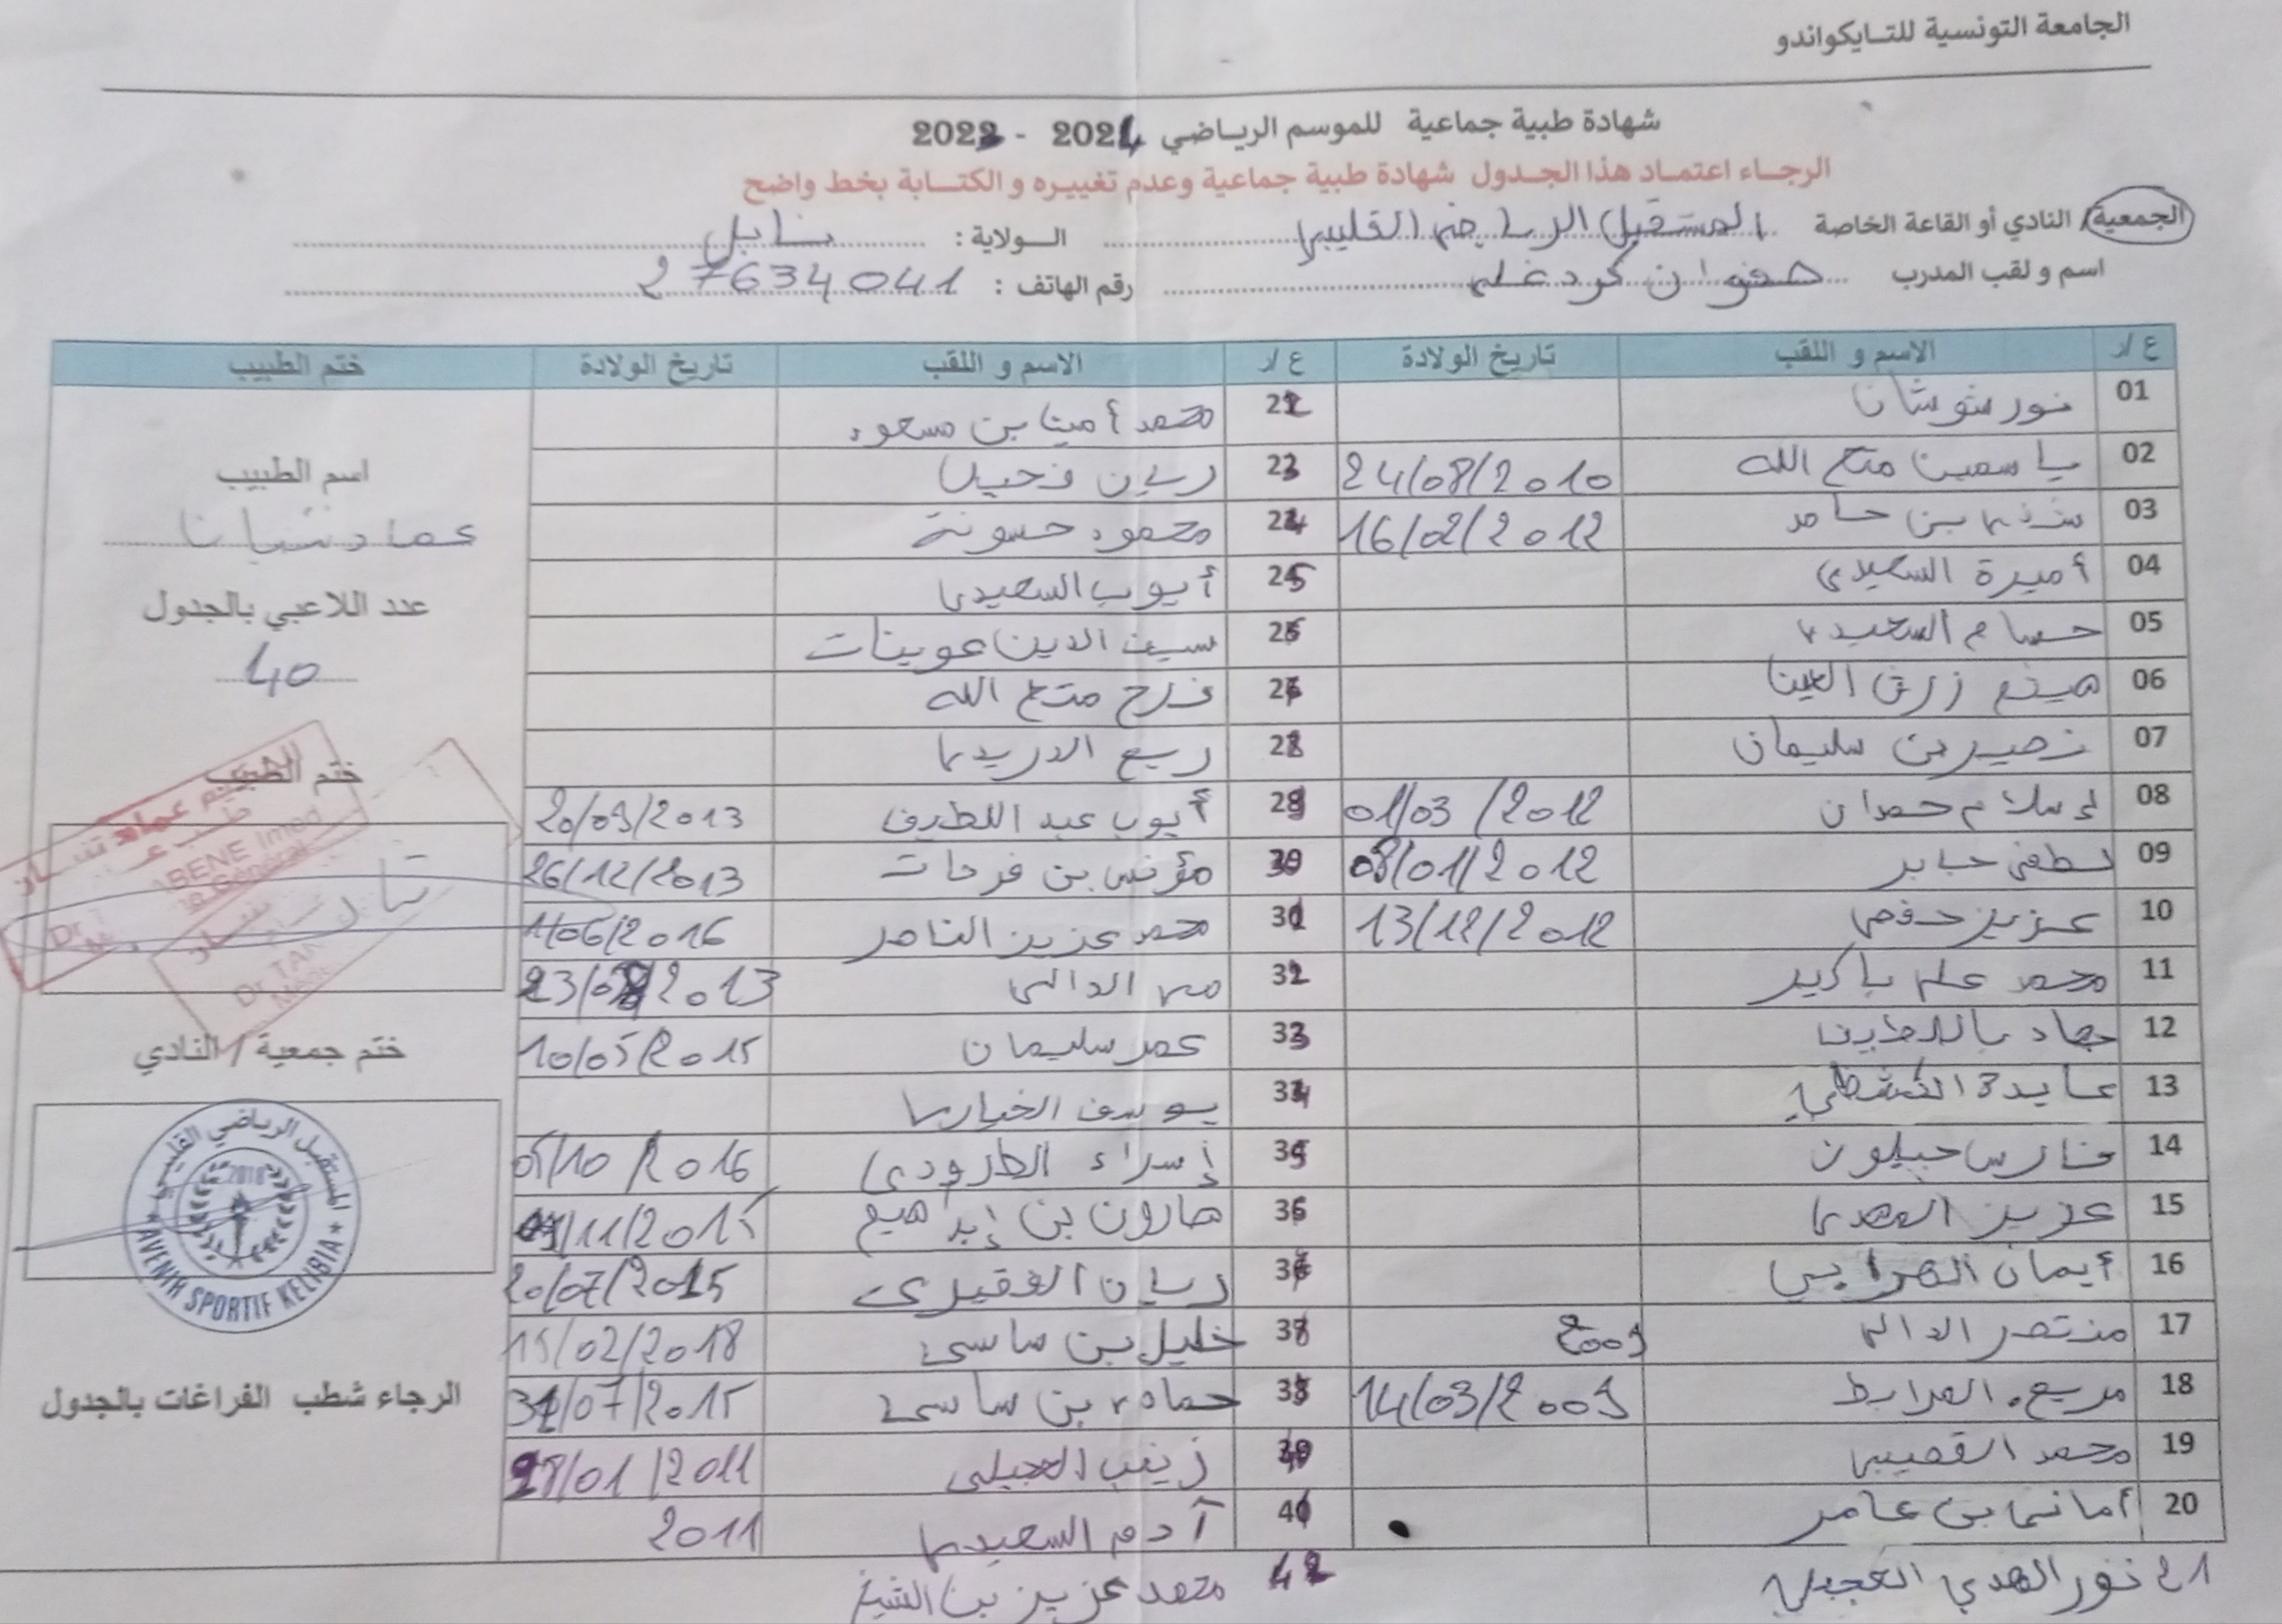 الجامعة التونسية للتـايكواندو
شهادة طبية جماعية للموسم الرياضي 2024 - 2023
الرجـاء اعتمـاد هذا الجـدول شهادة طبية جماعية وعدم تغييـره و الكتـابة بخط واضح
الجمعية/ النادي أو القاعة الخاصة المستقبل الرياضي القليبي الـولاية : نابل
اسم و لقب المدرب صفوان كردغلي رقم الهاتف : 27634041
ع /ر الاسم و اللقب تاريخ الولادة ع /ر الاسم و اللقب تاريخ الولادة ختم الطبيب
01 نور شوشان 22 محمد أمين بن مسعود
02 ياسمين متع الله 24/08/2010 23 ريان فحيل
03 بن حامد 16/02/2012 24 محمود حسونة
04 أميرة السعيدي 25 أيوب السعيدي
05 حسام السعيدي 26 سيف الدين عوينات
06 هيثم زرق العين 27 فرح متع الله
07 نصير بن سليمان 28 ربيع الدريدي
08 إسلام حمدان 01/03/2012 29 أيوب عبد اللطيف 20/09/2013
09 لطفي جابر 08/01/2012 30 مؤنس بن فرحات 26/12/2013
10 عزيز حفصي 13/12/2012 31 محمد عزيز الناصر 11/06/2016
11 محمد علي باكير 32 الدالي 2013
12 جهاد باللطيف 33 عمر سليمان 10/05/2015
13 عايدة 34 يوسف الخياري
14 فارس جبلون 35 إسراء الطرودي 05/10/2016
15 عزيز المهدي 36 هارون بن إبراهيم 11/2015
16 أيمان المرابي 37 ريان الفقيري 20/07/2015
17 منتصر الدالي 2009 38 خليل بن ساسي 15/02/2018
18 مريم المرابط 14/03/2009 39 حمادي بن ساسي 31/07/2015
19 محمد القصيبي 40 زينب العجيلي 28/01/2011
20 أماني بن عامر 41 آدم السعيدي 2011
21 نور الهدى العجيلي 42 محمد عزيز بن الشيخ
اسم الطبيب
عماد تنبان
عدد اللاعبي بالجدول
40
ختم الطبيب
ختم جمعية / النادي
المستقبل الرياضي القليبي
2018
AVENIR SPORTIF KELIBIA
الرجاء شطب الفراغات بالجدول